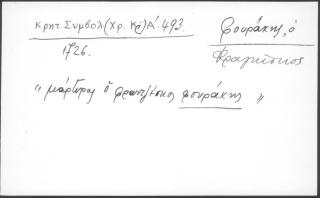 Κρητ. Συμβολ (Χρ. Κρ) Α' 493.
1726.
Φουράκης, ὁ
Φραγκίσκος
" μάρτυρας ὁ φραντζέσκος φουράκης "